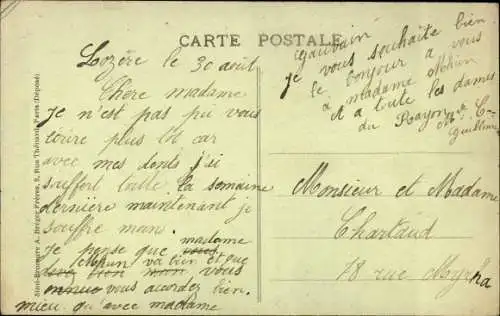 CARTE POSTALE
Lozère le 30 août
Chère madame
je n'est pas pu vous
écrire plus tot car
avec mes dents j'ai
souffert toute la semaine
dernière maintenant je
souffre moin.
je pense que madame
va bien et que
vous
vous acordez bien.
mieu qu'avec madame
je vous souhaite bien
le bonjour a vous
a madame
et a toute les dames
du Rayon
Monsieur et Madame
Chartaud
18 rue Myrha
Simi-Bromure A. Breger Frères, 9, Rue Thénard, Paris (Déposé)